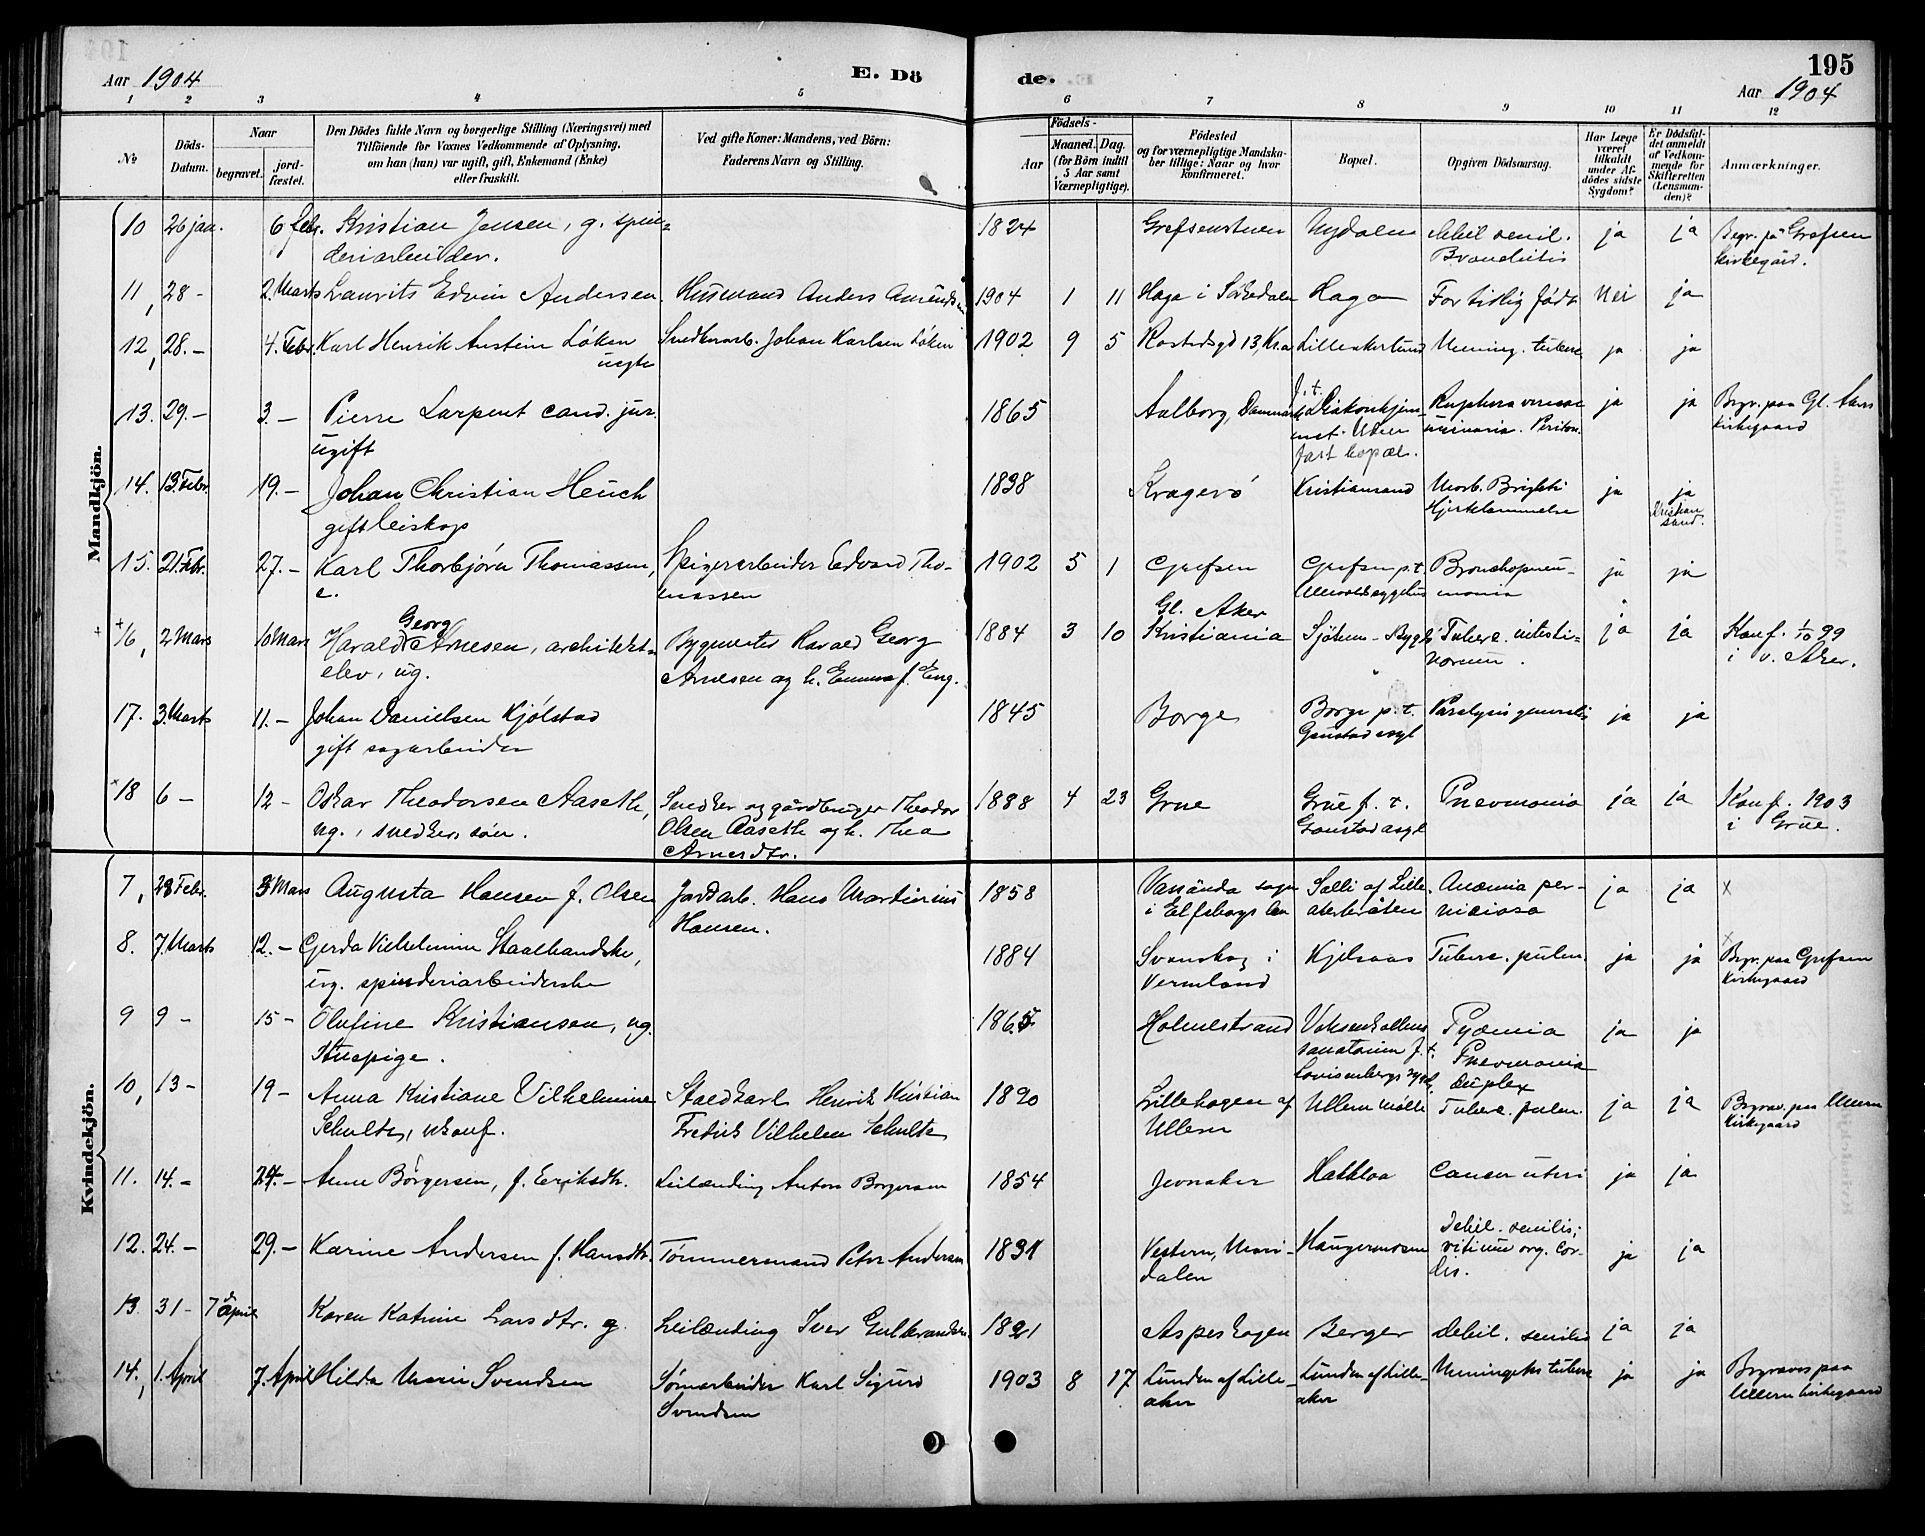 Aar 1904 E. Dö
de. 195
Aar 1904
1 2 3 4 5 6 7 8 9 10 11 12
№
Döds-
Datum.
Naar
begravet.
jord-
fæstet.
Den Dödes fulde Navn og borgerlige Stilling (Næringsvei) med
Tilföiende for Voxnes Vedkommende af Oplysning,
om han (hun) var ugift, gift, Enkemand (Enke)
eller fraskilt.
Ved gifte Koner: Mandens, ved Börn:
Faderens Navn og Stilling.
Födsels-
Aar
Maaned. Dag.
(for Börn indtil
5 Aar samt
Værnepligtige).
Födested
og for værnepligtige Mandska-
ber tillige: Naar og hvor
konfirmeret.
Bopæl.
Opgiven Dödsaarsag.
Har Læge
været
tilkaldt
under Af-
dødes sidste
Sygdom?
Er Dödsfal-
det anmeldt
af Vedkom-
mende for
Skifteretten
(Lensman-
den)?
Anmærkninger.
Mandkjön.
10 26 jan. 6 febr. Kristian Jensen, g. spin-
deriarbeider.
1824 Grefsenstuen Nydalen debil. senil.
Bronchitis
ja ja Begr. på Grefsen
kirkegård.
11, 28 - 2. Marts Laurits Edvin Andersen Husmand Anders Amunds
1904 1 11 Haga i Sörkedalen Haga For tidlig födt nei ja
12, 28. - 4. Febr. Karl Henrik Austein Løken
uegte
Snedkerarb. Johan Karlsen Løken
1902 9 5 Rostedsgd 13, Kra Lilleakerlund Mening. tuberc ja ja
13. 29. - 3. - Pierre Larpent cand. jur.
ugift
1865 Aalborg, Danmark Diakonhjem-
met. Uden
fast bopæl.
Ruptura vesicae
urinaria. Periton.
ja ja Begr. paa Gl. Akers
kirkegaard
14. 13. Febr 19. - Johan Christian Heuch
gift biskop
1838 Kragerö Kristianssand Morb. Brightii
Hjertelammelse
ja ja
Kristian
sand.
15. 21. Febr. 27. - Karl Thorbjörn Thomassen,
e.
Spigerarbeider Edvard Tho-
massen
1902 5 1 Grefsen Grefsen p.t.
Ullevoldsygehus
Bronchopneu-
monia
ja ja
16, 2 Mars 10 Mars Harald Georg Arnesen, architekt-
elev, ug.
Bygmester Harald Georg
Arnesen og h. Emma f. Eng.
1884 3 10 Gl. Aker
Kristiania
Tuberc. intesti-
norum.
ja ja Konf. 1/10 99
i v. Aker.
17. 3. Marts 11. - Johan Danielsen Kjølstad
gift sagarbeider
1845 Borge Borge p.t.
Gaustad asyl
Paralysis generalis ja ja
18 6 - 12 - Oskar Theodorsen Aaseth,
ug., snedkers sön.
Snedker og gårdbruger Theodor
Olsen Aaseth og h. Thea
Arnesdtr.
1888 4 23 Grue Grue p. t.
Gaustad asyl
Pnevmonia ja ja Konf. 1903
i Grue.
Kvindekjön.
7, 28 Febr. 3 Mars Augusta Hansen f. Olsen Jordarb. Hans Martinius
Hansen.
1858 Vassända sogn
i Elfsborgs len
Sølli af Lille-
akerbråten
Anæmia per-
niciosa
ja ja x
8. 7. Marts 12. - Gerda Vilhelmine Staalhandske,
ug. spinderiarbeiderske
1884 Svanskog i
Vermland
Kjelsaas Tuberc. pulm. ja ja Begr. paa Grefsen
kirkegaard
9 9 - 15 - Olufine Kristiansen, ug.
Stuepige.
1865 Holmestrand Voksenkollens
sanatorium p. t.
Lovisenbergs sygeh.
Pyæmia
Pnevmonia
duplex
ja ja
10, 13 - 19 - Anna Kristiane Vilhelmine
Schultz, ukonf.
Staldkarl Henrik Kristian
Fredrik Vilhelm Schultz
1890 Lillehagen af
Ullern
Ullern Mølle Tuberc. pulm. ja ja Begrav. paa Ullern
Kirkegaard
11. 14. - 24. - Anne Börgersen, f. Eriksdtr. Leilænding Anton Borgersen
1854 Jevnaker Hakkloa Cancer uteri ja ja
12. 24. - 29. - Karine Andersen f. Hansdtr. Tömmermand Peter Andersen
1831 Vestern, Mari-
dalen
Haugermosen Debil. senilis;
vitium org. cor-
dis.
ja ja
13 31 - 7 April Karen Katrine Larsdtr. g. Leilænding Iver Gulbrandsen
1821 Aspeskogen Berger debil. senilis ja ja
14., 1. April 7. April Hilda Marie Svendsen Sømarbeider Karl Sigurd
Svendsen
1903 8 17 Lunden af Lille-
aker
Lunden af Lille-
aker
Meningitis tuberc ja ja Begraves paa
Ullern kirkegaard